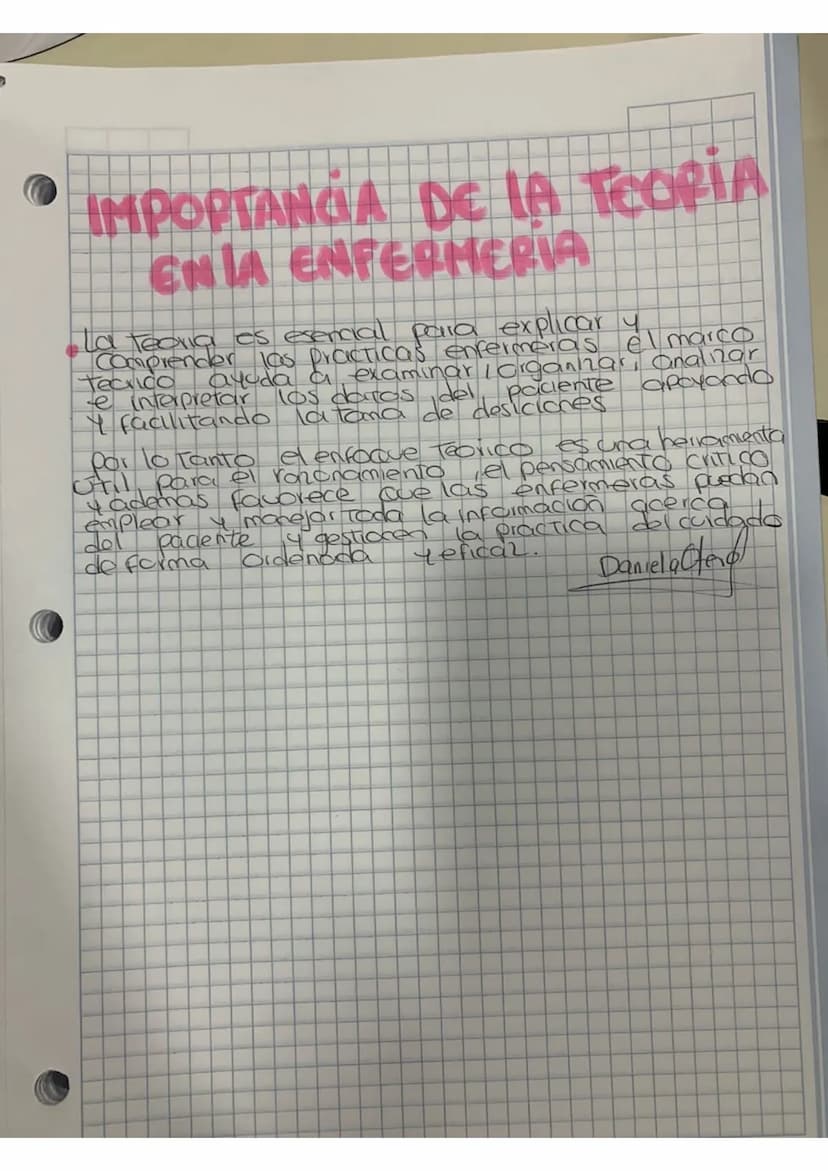 IMPORTANCIA DE LA TEORIA
EN LA ENFERMERIA
La Teoria es esencial para explicar y
comprender las practicas enfermeras el marco
teorico ayuda a examinar, organizar, analizar
e interpretar los datos del paciente apoyando
y facilitando la toma de desiciones
Por lo Tanto el enfoque Teorico es una herramienta
util para el razonamiento, el pensamiento critico
y además favorece que las enfermeras puedan
emplear y manejar Toda la información acerca
del paciente y gestionen la práctica del cuidado
de forma ordenada y eficaz.
Daniela